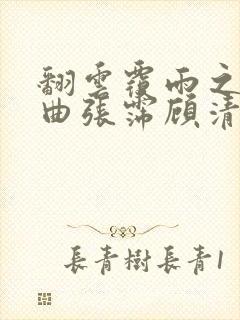 翻雲覆雨之
曲張霈顧清
長青樹長青1